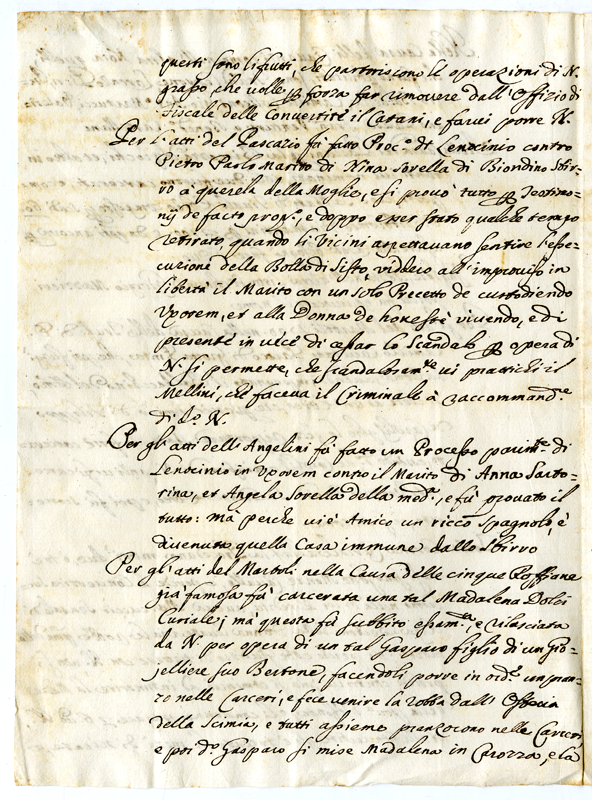 questi sono li frutti, che partoriscono le operazioni di N.
grasso, che volle p forza far rimovere dall' Offizio di
fiscale delle Convertite il Catani, e farui porre N.
Per l'atti del Pascazio fù fatto Proc.o di Lenocinio contro
Pietro Paolo Marito di Nina sorella di Biondino Sbir-
ro à querela della Moglie, e si provò tutto p Testimo-
nij de facto prop.o, e doppo esser stato qualche tempo
retirato, quando li Vicini aspettavano sentire l'ese-
cuzione della Bolla di Sisto, viddero all'improviso in
libertà il Marito con un solo Precetto de custodiendo
Uxorem, et alla Donna de honestè vivendo, e di
presente in vece di cessar lo scandalo p opera di
N. si permette, che scandalosam.te vi pratichi il
Mellini, che faceva il Criminale à raccommand.e
di d.o N.
Per gl'atti dell'Angelini fù fatto un Processo parim.te di
Lenocinio in Uxorem contro il Marito di Anna Sarto-
rina, et Angela sorella della med.a, e fù provato il
tutto: mà perche vi è Amico un ricco Spagnolo, è
divenuta quella Casa immune dallo Sbirro
Per gl'atti del Martoli nella Causa delle cinque Ruffiane
già famosa fù carcerata una tal Madalena Dolci
Curiale; mà questa fù subbito esam.ta, e rilasciata
da N. per opera di un tal Gasparo figlio di un Gio-
jelliere suo Bertone, facendoli porre in ord.e un pran-
zo nelle Carceri, e fece venire la robba dall'Osteria
della Scimia, e tutti assieme pranzorono nelle Carceri,
e poi d.o Gasparo si mise Madalena in Carozza, e la